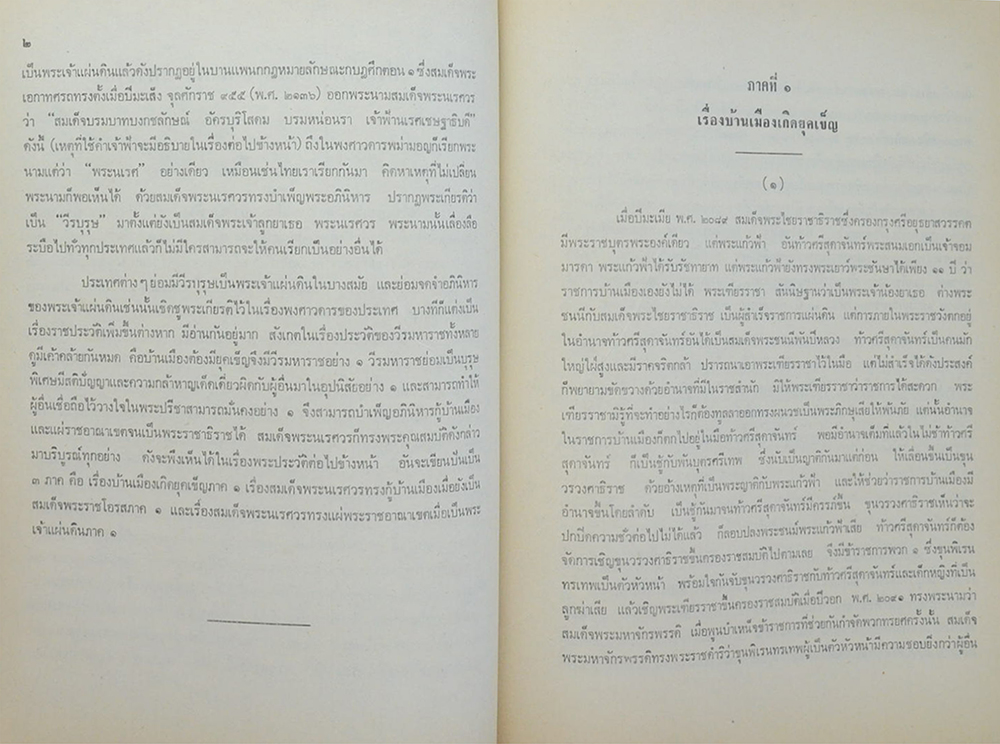 ๒
เป็นพระเจ้าแผ่นดินแล้วดังปรากฏอยู่ในบานแพนกกฎหมายลักษณะกบฏศึกตอน ๑ ซึ่งสมเด็จพระ
เอกาทศรถทรงตั้งเมื่อปีมะเส็ง จุลศักราช ๙๕๕ (พ.ศ. ๒๑๓๖) ออกพระนามสมเด็จพระนเรศวร
ว่า “สมเด็จบรมบาทบงกชลักษณ์ อัครบุริโสดม บรมหน่อนรา เจ้าฟ้านเรศเชษฐาธิบดี”
ดังนี้ (เหตุที่ใช้คำเจ้าฟ้าจะมีอธิบายในเรื่องต่อไปข้างหน้า) ถึงในพงศาวดารพม่ามอญก็เรียกพระ
นามแต่ว่า “พระนเรศ” อย่างเดียว เหมือนเช่นไทยเราเรียกกันมา คิดหาเหตุที่ไม่เปลี่ยน
พระนามก็พอเห็นได้ ด้วยสมเด็จพระนเรศวรทรงบำเพ็ญพระอภินิหาร ปรากฏพระเกียรติว่า
เป็น “วีรบุรุษ” มาตั้งแต่ยังเป็นสมเด็จพระเจ้าลูกยาเธอ พระนเรศวร พระนามนั้นเลื่องลือ
ระบือไปทั่วทุกประเทศแล้วก็ไม่มีใครสามารถจะให้คนเรียกเป็นอย่างอื่นได้
ประเทศต่างๆ ย่อมมีวีรบุรุษเป็นพระเจ้าแผ่นดินในบางสมัย และย่อมจดจำอภินิหาร
ของพระเจ้าแผ่นดินเช่นนั้นเชิดชูพระเกียรติไว้ในเรื่องพงศาวดารของประเทศ บางทีก็แต่งเป็น
เรื่องราชประวัติเพิ่มขึ้นต่างหาก มีอ่านกันอยู่มาก สังเกตในเรื่องประวัติของวีรมหาราชทั้งหลาย
ดูมีเค้าคล้ายกันหมด คือบ้านเมืองต้องมียุคเข็ญจึงมีวีรมหาราชอย่าง ๑ วีรมหาราชย่อมเป็นบุรุษ
พิเศษมีสติปัญญาและความกล้าหาญเด็ดเดี่ยวผิดกับผู้อื่นมาในอุปนิสัยอย่าง ๑ และสามารถทำให้
ผู้อื่นเชื่อถือไว้วางใจในพระปรีชาสามารถมั่นคงอย่าง ๑ จึงสามารถบำเพ็ญอภินิหารกู้บ้านเมือง
และแผ่ราชอาณาเขตจนเป็นพระราชาธิราชได้ สมเด็จพระนเรศวรก็ทรงพระคุณสมบัติดังกล่าว
มาบริบูรณ์ทุกอย่าง ดังจะพึงเห็นได้ในเรื่องพระประวัติต่อไปข้างหน้า อันจะเขียนปันเป็น
๓ ภาค คือ เรื่องบ้านเมืองเกิดยุคเข็ญภาค ๑ เรื่องสมเด็จพระนเรศวรทรงกู้บ้านเมืองเมื่อยังเป็น
สมเด็จพระราชโอรสภาค ๑ และเรื่องสมเด็จพระนเรศวรทรงแผ่พระราชอาณาเขตเมื่อเป็นพระ
เจ้าแผ่นดินภาค ๑
ภาคที่ ๑
เรื่องบ้านเมืองเกิดยุคเข็ญ
(๑)
เมื่อปีมะเมีย พ.ศ. ๒๐๘๙ สมเด็จพระไชยราชาธิราชซึ่งครองกรุงศรีอยุธยาสวรรคต
มีพระราชบุตรพระองค์เดียว แต่พระแก้วฟ้า อันท้าวศรีสุดาจันทร์พระสนมเอกเป็นเจ้าจอม
มารดา พระแก้วฟ้าได้รับรัชทายาท แต่พระแก้วฟ้ายังทรงพระเยาว์พระชันษาได้เพียง ๑๑ ปี ว่า
ราชการบ้านเมืองเองยังไม่ได้ พระเฑียรราชา สันนิษฐานว่าเป็นพระเจ้าน้องยาเธอ ต่างพระ
ชนนีกับสมเด็จพระไชยราชาธิราช เป็นผู้สำเร็จราชการแผ่นดิน แต่การภายในพระราชวังตกอยู่
ในอำนาจท้าวศรีสุดาจันทร์อันได้เป็นสมเด็จพระชนนีพันปีหลวง ท้าวศรีสุดาจันทร์เป็นคนมัก
ใหญ่ใฝ่สูงและมีราคจริตกล้า ปรารถนาเอาพระเฑียรราชาไว้ในมือ แต่ไม่สำเร็จได้ดังประสงค์
ก็พยายามขัดขวางด้วยอำนาจที่มีในราชสำนัก มิให้พระเฑียรราชาว่าราชการได้สะดวก พระ
เฑียรราชามิรู้ที่จะทำอย่างไรก็ต้องทูลลาออกทรงผนวชเป็นพระภิกษุเสียให้พ้นภัย แต่นั้นอำนาจ
ในราชการบ้านเมืองก็ตกไปอยู่ในมือท้าวศรีสุดาจันทร์ พอมีอำนาจเต็มที่แล้วในไม่ช้าท้าวศรี
สุดาจันทร์ ก็เป็นชู้กับพันบุตรศรีเทพ ซึ่งนับเป็นญาติกันมาแต่ก่อน ให้เลื่อนขึ้นเป็นขุน
วรวงศาธิราช ด้วยอ้างเหตุที่เป็นพระญาติกับพระแก้วฟ้า และให้ช่วยว่าราชการบ้านเมืองมี
อำนาจขึ้นโดยลำดับ เป็นชู้กันมาจนท้าวศรีสุดาจันทร์มีครรภ์ขึ้น ขุนวรวงศาธิราชเห็นว่าจะ
ปกปิดความชั่วต่อไปไม่ได้แล้ว ก็ลอบปลงพระชนม์พระแก้วฟ้าเสีย ท้าวศรีสุดาจันทร์ก็ต้อง
จัดการเชิญขุนวรวงศาธิราชขึ้นครองราชสมบัติไปตามเลย จึงมีข้าราชการพวก ๑ ซึ่งขุนพิเรน
ทรเทพเป็นตัวหัวหน้า พร้อมใจกันจับขุนวรวงศาธิราชกับท้าวศรีสุดาจันทร์และเด็กหญิงที่เป็น
ลูกฆ่าเสีย แล้วเชิญพระเฑียรราชาขึ้นครองราชสมบัติเมื่อปีวอก พ.ศ. ๒๐๙๑ ทรงพระนามว่า
สมเด็จพระมหาจักรพรรดิ เมื่อพูนบำเหน็จข้าราชการที่ช่วยกันกำจัดพวกทรยศครั้งนั้น สมเด็จ
พระมหาจักรพรรดิทรงพระราชดำริว่าขุนพิเรนทรเทพผู้เป็นตัวหัวหน้ามีความชอบยิ่งกว่าผู้อื่น